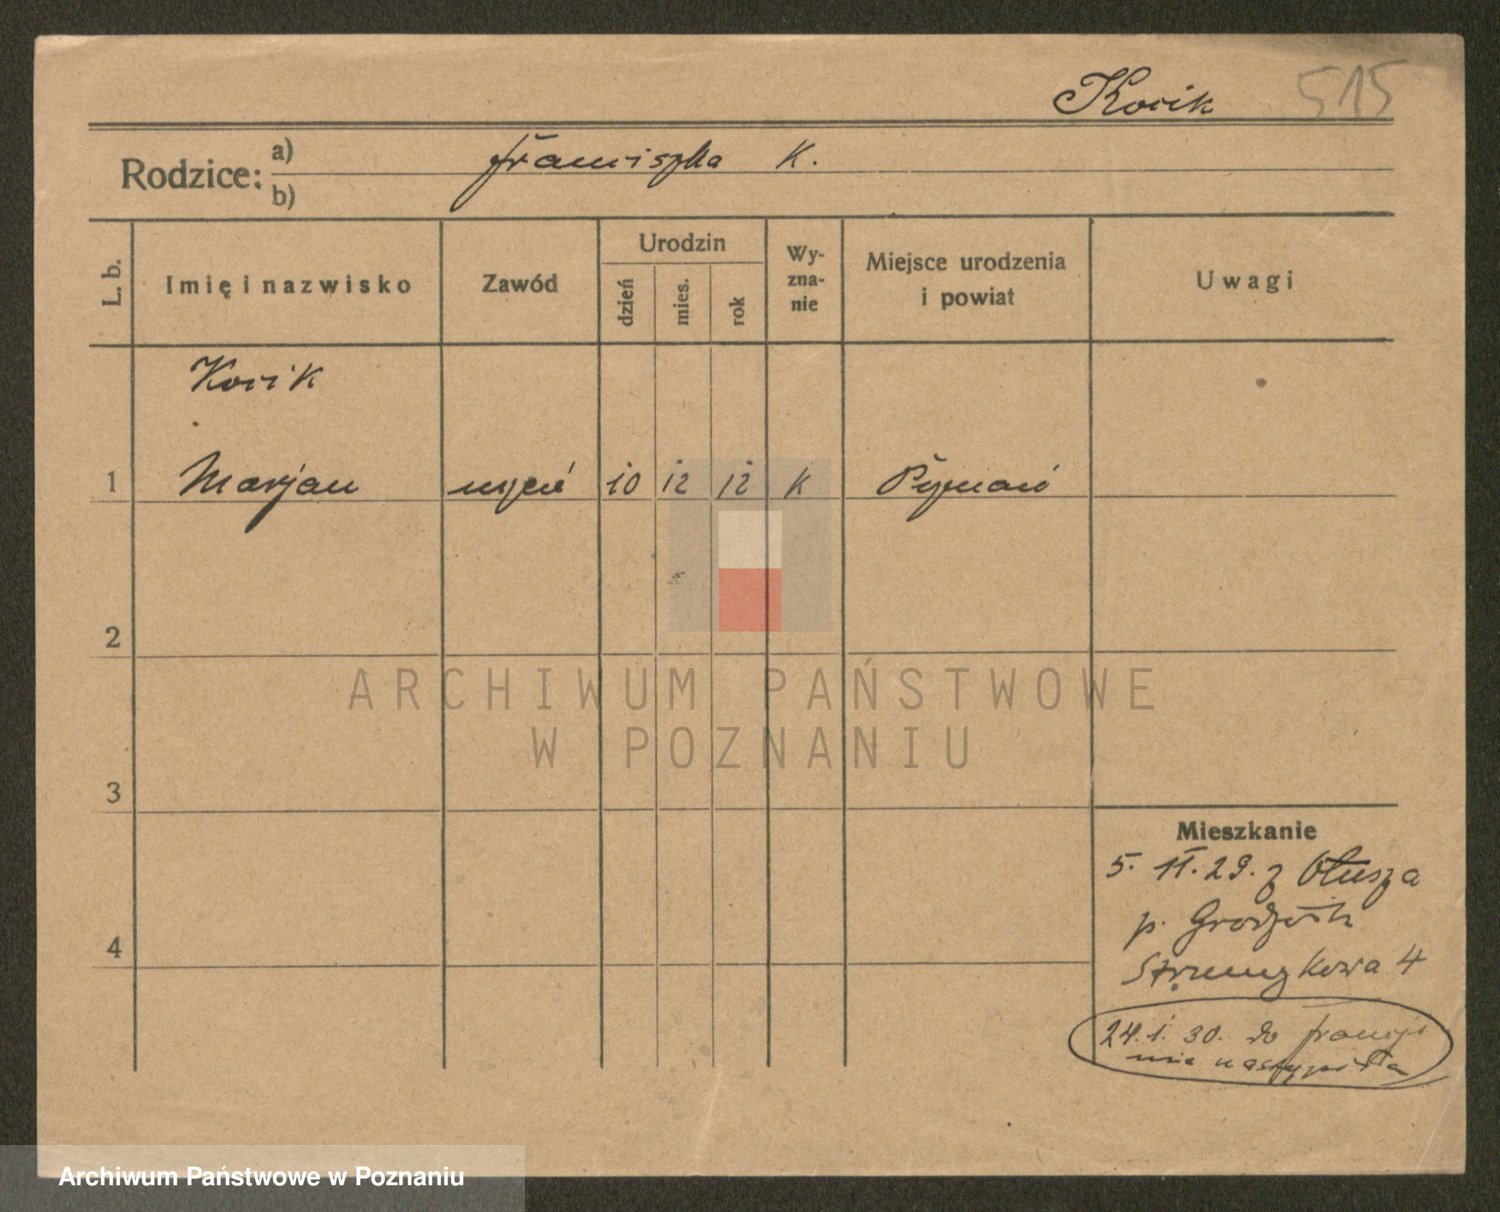 Kocik 515
Rodzice: a) Franciszka K.
b)
L. b.
Imię i nazwisko
Zawód
Urodzin
dzień
mies.
rok
Wy-
zna-
nie
Miejsce urodzenia
i powiat
Uwagi
Kocik
1 Marjan uczeń 10 12 12 K Poznań
2
3
4
ARCHIWUM PAŃSTWOWE
W POZNANIU
Mieszkanie
5. 11. 29. z Otusza
p. Grodzisk
Strumykowa 4
24. 1. 30. do Francji
nie nastąpiła
Archiwum Państwowe w Poznaniu